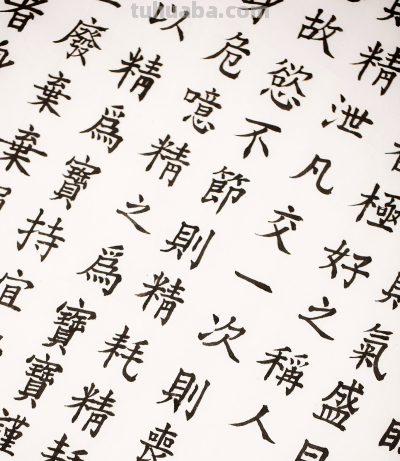 氣盛
極好之稱人
精泄凡交一次則喪
故慾不節則精耗精耗
危噫精之爲寶寶謹
以精爲寶持宜
廢棄棄
者
tuhuaba.com